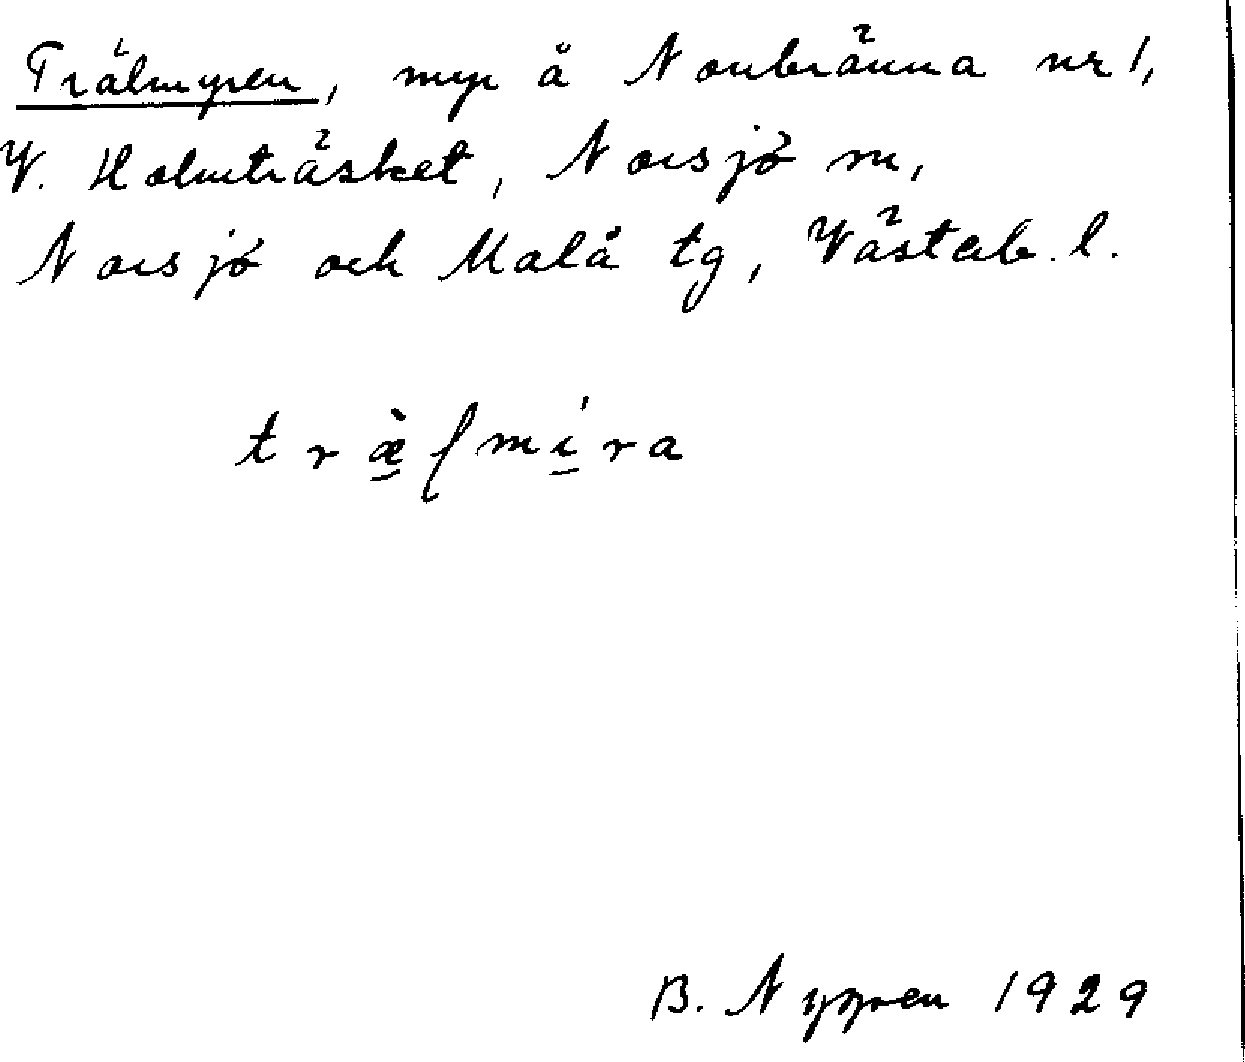 Trälmyren, myr å Norrbränna nr 1,
V. Holmträsket, Norsjö sn,
Norsjö och Malå tg, Västerb. l.
træ̀lmíra
B. Nygren 1929